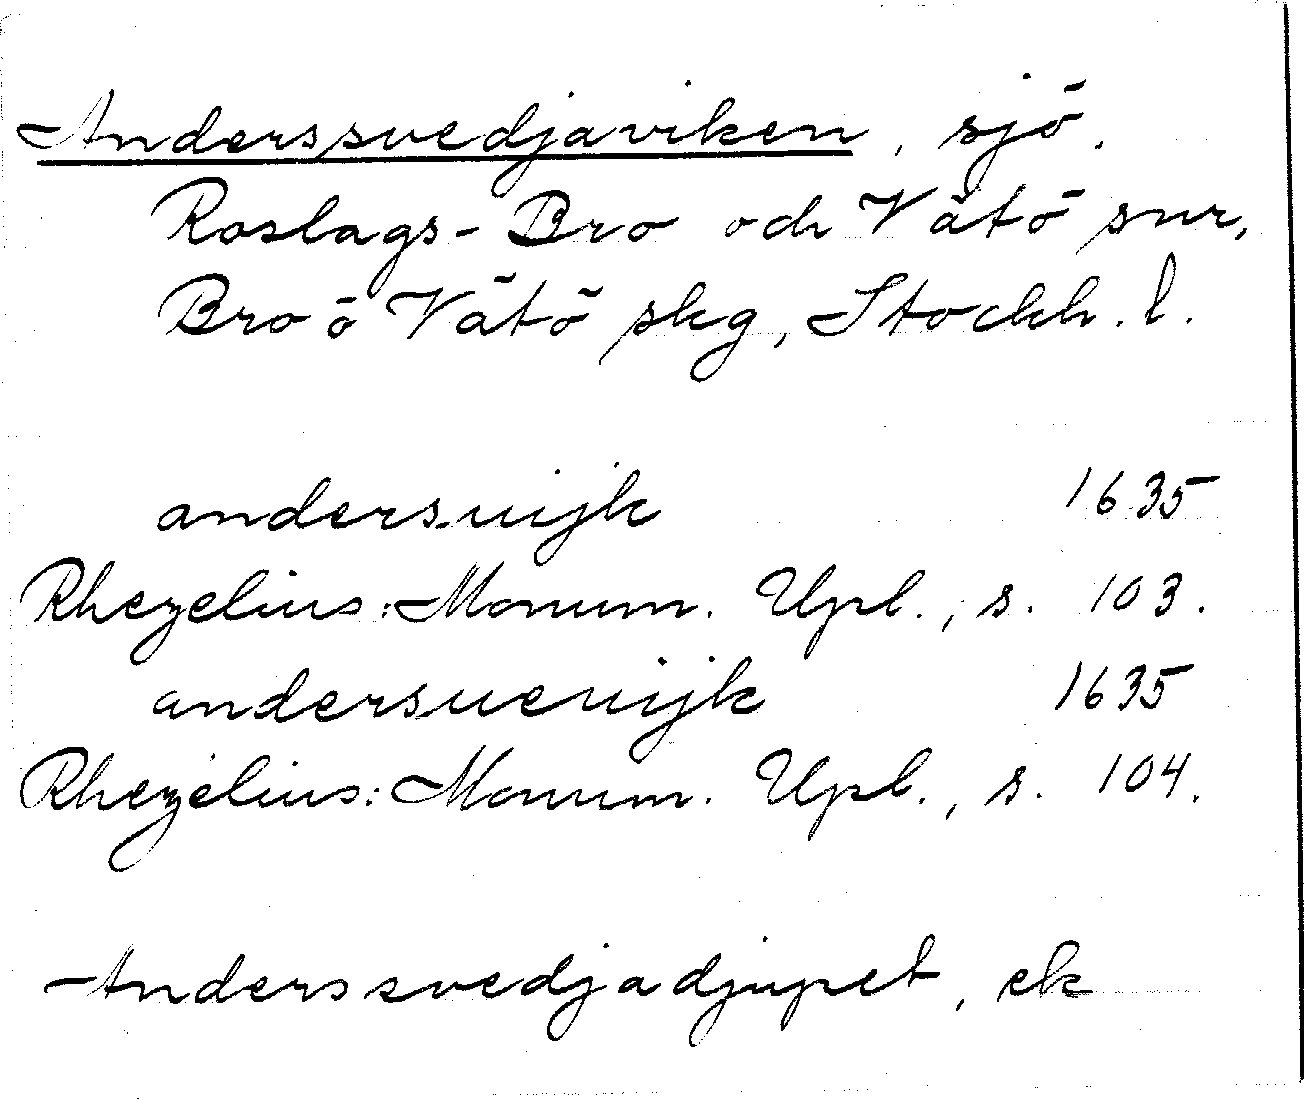 Anderssvedjaviken, sjö.
Roslags-Bro och Vätö snr,
Bro ö Vätö skg, Stockh. l.
andersuijk 1635
Rhezelius: Monum. Upl., s. 103.
andersueuijk 1635
Rhezelius: Monum. Upl., s. 104.
Anderssvedjadjupet, ek